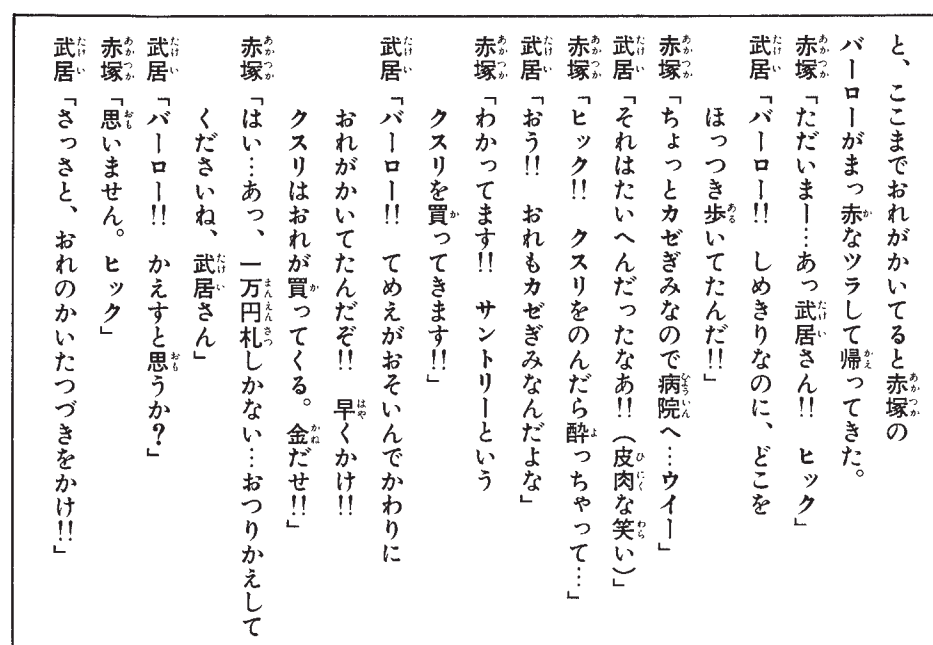 と、ここまでおれがかいてると赤塚の
バーローがまっ赤なツラして帰ってきた。
赤塚「ただいまー…あっ武居さん!! ヒック」
武居「バーロー!! しめきりなのに、どこを
ほっつき歩いてたんだ!!」
赤塚「ちょっとカゼぎみなので病院へ…ウイー」
武居「それはたいへんだったなあ!!(皮肉な笑い)」
赤塚「ヒック!! クスリをのんだら酔っちゃって…」
武居「おう!! おれもカゼぎみなんだよな」
赤塚「わかってます!! サントリーという
クスリを買ってきます!!」
武居「バーロー!! てめえがおそいんでかわりに
おれがかいてたんだぞ!! 早くかけ!!
クスリはおれが買ってくる。金だせ!!」
赤塚「はい…あっ、一万円札しかない…おつりかえして
くださいね、武居さん」
武居「バーロー!! かえすと思うか?」
赤塚「思いません。ヒック」
武居「さっさと、おれのかいたつづきをかけ!!」